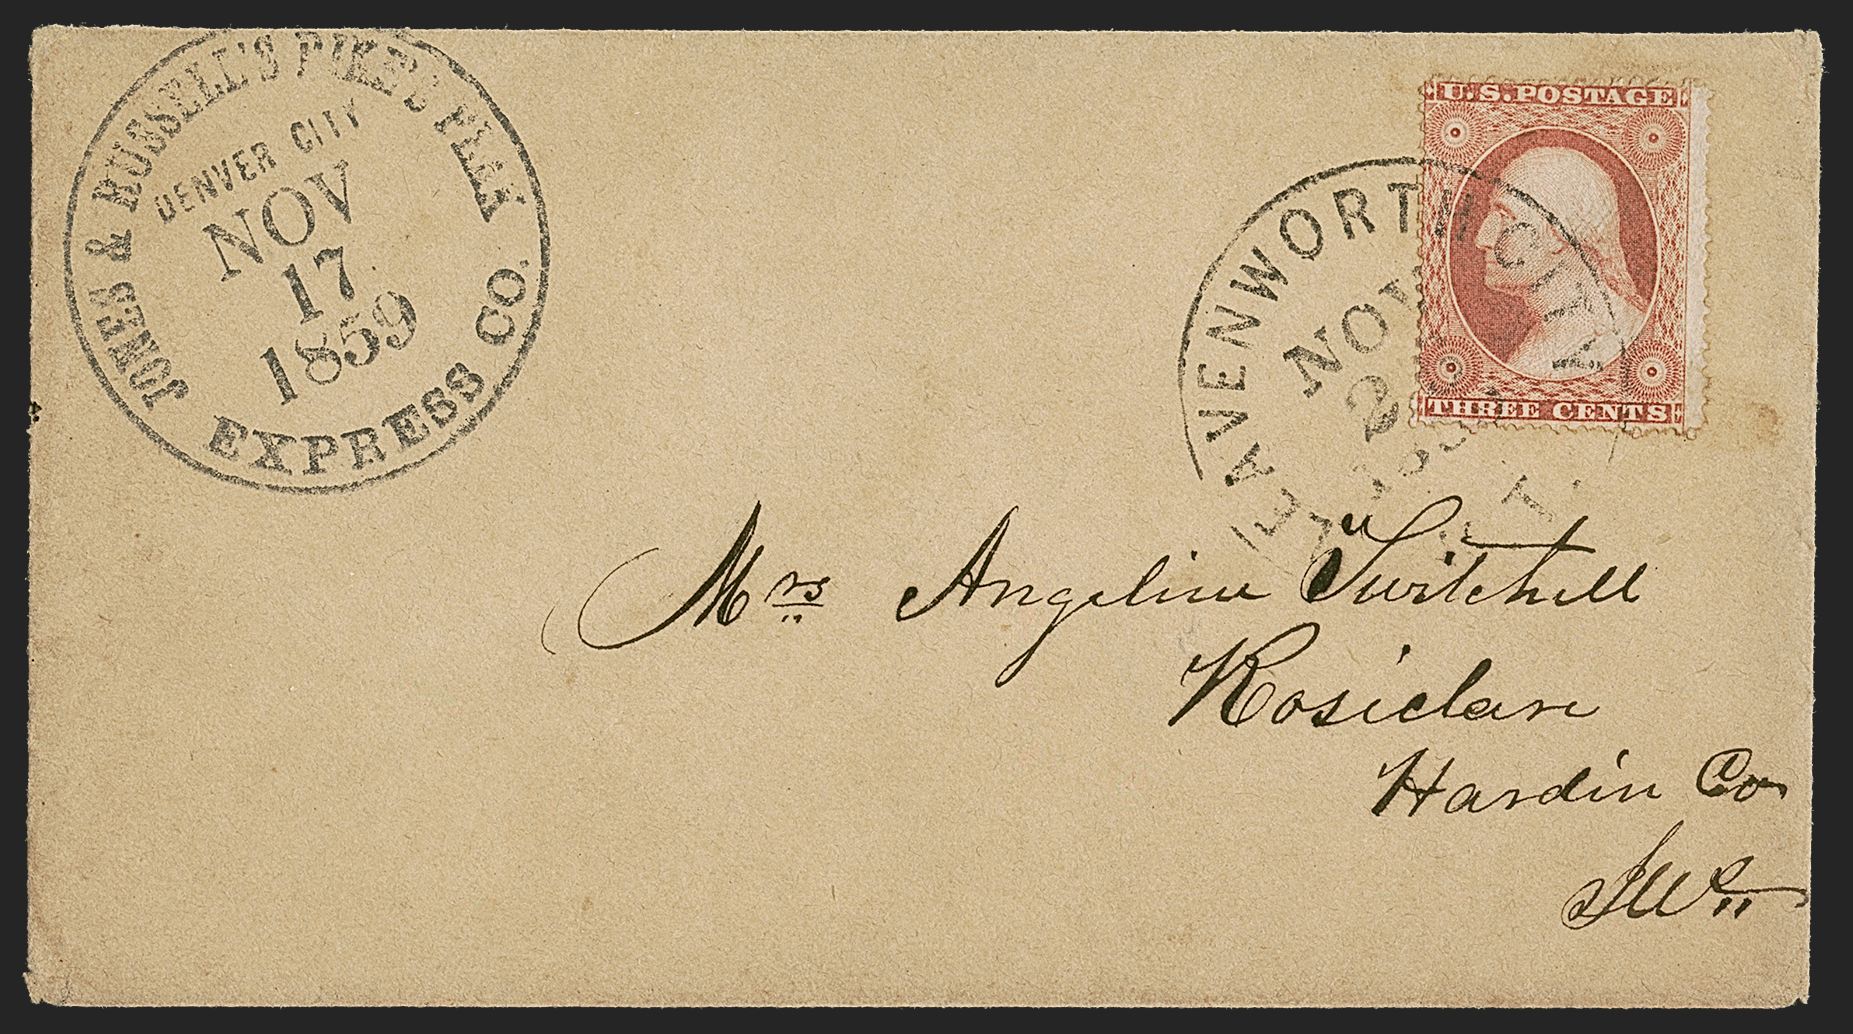 JONES & RUSSELL'S PIKE'S PEAK
EXPRESS CO.
DENVER CITY
NOV
17
1859
LEAVENWORTH CITY
NOV
2
185
K. T.
U.S. POSTAGE
THREE CENTS
Mrs Angeline Twitchell
Rosiclare
Hardin Co
Ills